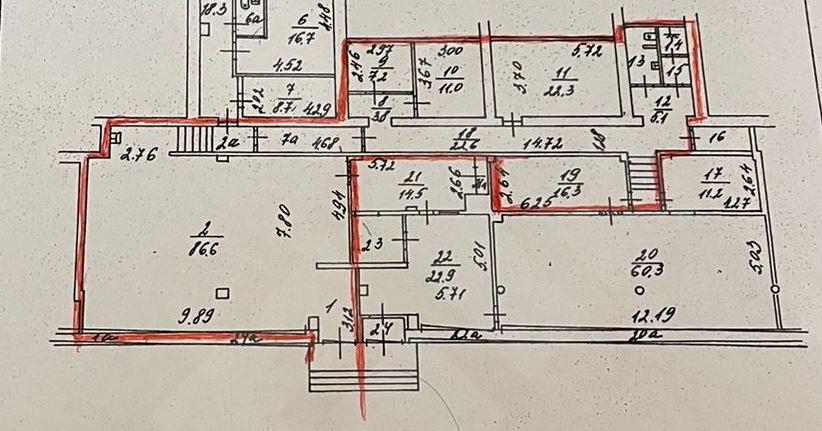 18.3
6а
6
16.7
4.48
4.52
7
8.7
2.02
4.29
2.97
2.46
9
7.2
8
3.8
3.00
3.67
10
11.0
5.72
3.70
11
22.3
13
14
15
12
5.1
2.76
2а
7а
4.68
18
22.6
14.72
16
5.72
21
14.5
2.66
2.64
19
16.3
6.25
17
11.2
2.64
4.27
2
86.6
7.80
4.94
23
22
22.9
5.71
5.01
20
60.3
5.03
12.19
9.89
1
3.12
24
1а
22а
20а